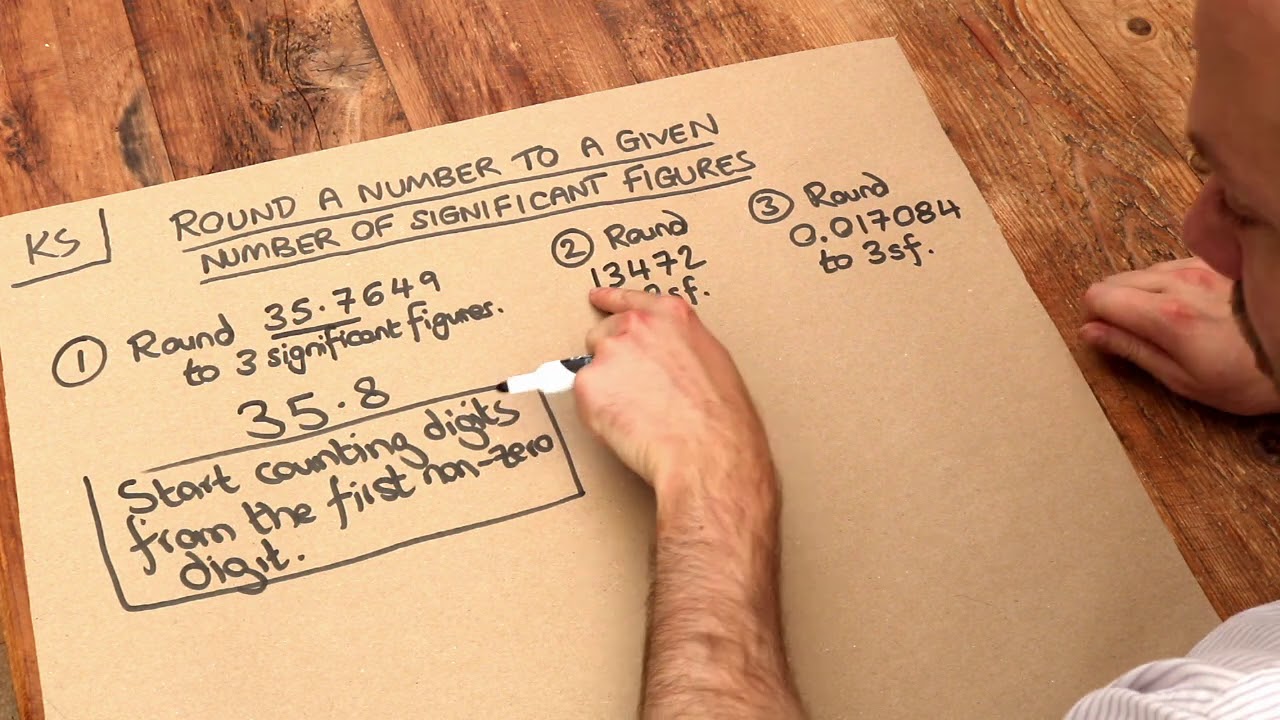 KS
ROUND A NUMBER TO A GIVEN
NUMBER OF SIGNIFICANT FIGURES
① Round 35.7649
to 3 significant figures.
35.8
Start counting digits
from the first non-zero
digit.
② Round
13472
sf.
③ Round
0.017084
to 3sf.